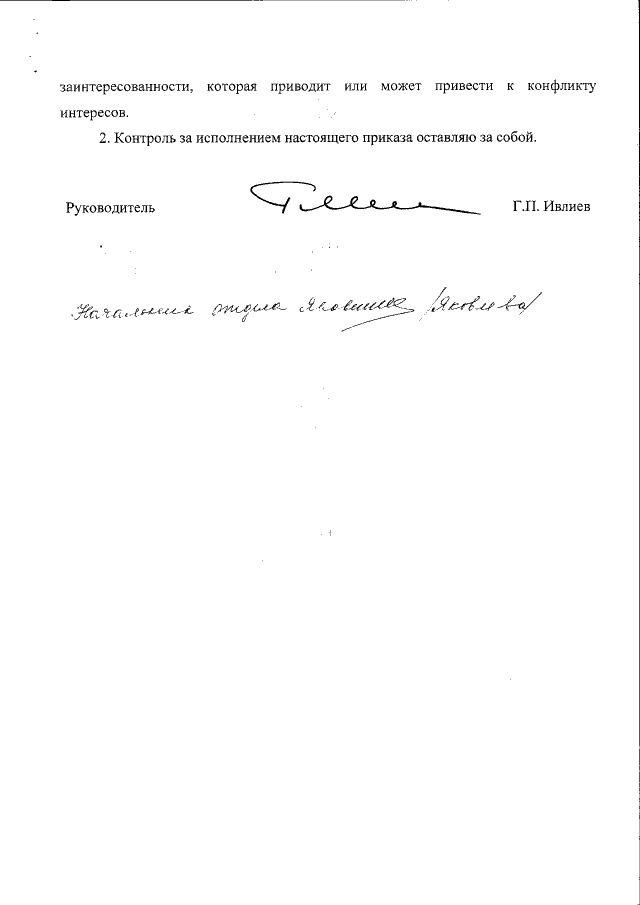 заинтересованности, которая приводит или может привести к конфликту
интересов.
2. Контроль за исполнением настоящего приказа оставляю за собой.
Руководитель Г.П. Ивлиев
Начальник отдела /Яковлева/